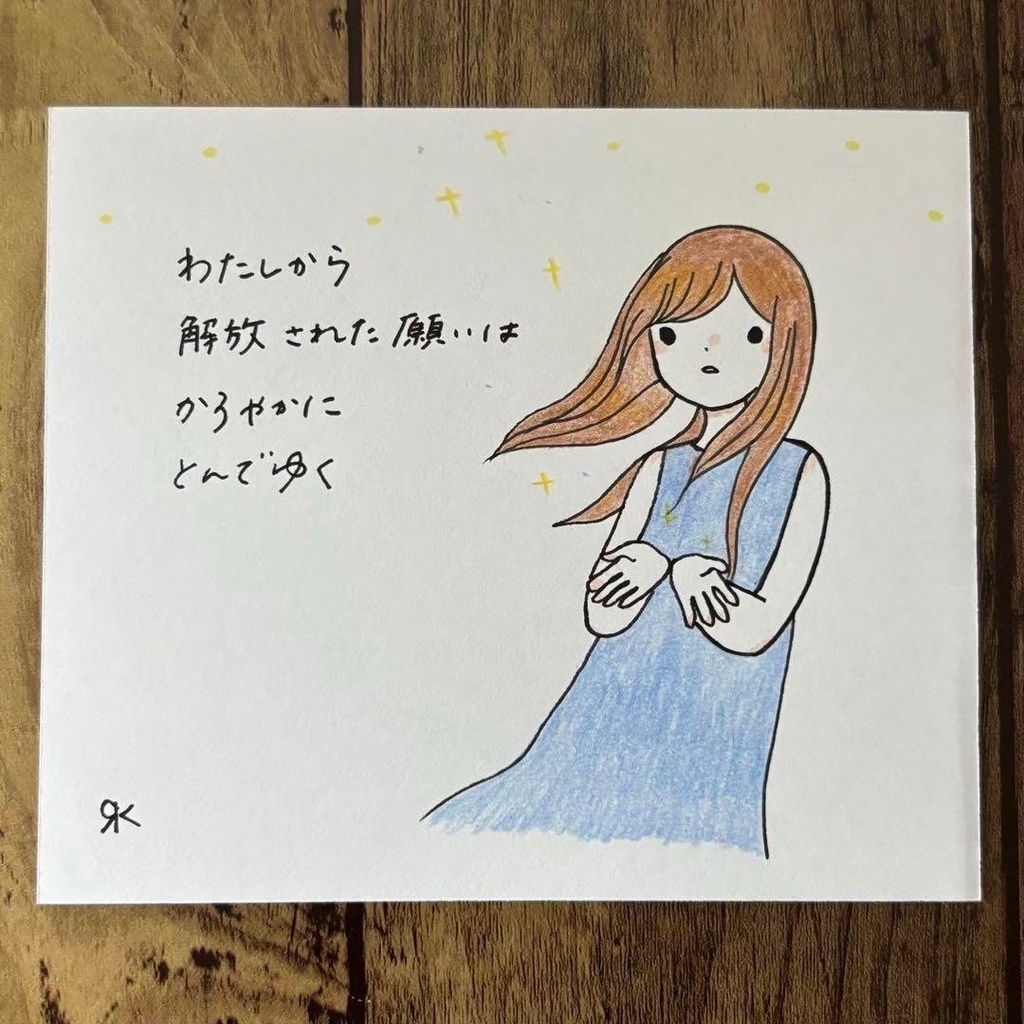 わたしから
解放された願いは
かろやかに
とんでゆく
RK